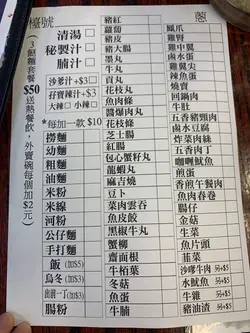 檯號
(3餸麵套餐$50送熱餐飲，外賣碗每個加$2元)
清湯
秘製汁
腩汁
沙爹汁+$3
孖寶辣汁+$3
大辣 小辣
*每加一款 $10
撈麵
幼麵
粗麵
油麵
米粉
米線
河粉
公仔麵
手打麵
飯 (加$5)
烏冬 (加$3)
出前一丁(加$3)
腸粉
豬紅
蘿蔔
豬皮
豬大腸
墨丸
牛丸
貢丸
花枝丸
魚肉條
醬爆肉丸
花枝條
芝士腸
紅腸
包心蟹籽丸
龍蝦丸
麻吉燒
豆卜
菜肉雲吞
魚皮餃
黑椒牛丸
蟹柳
齋面根
牛栢葉
冬菇
魚蛋
牛腩
鳳爪
雞腎
雞中翼
鹵水蛋
雞翼尖
辣魚蛋
燒賣
回鍋肉
牛肚
五香豬頸肉
鹵水豆腐
炸菜肉絲
五香肉丁
咖喱魷魚
煎蛋
香煎午餐肉
魚肉春卷
腸仔
金菇
生菜
魚片頭
韭菜
沙嗲牛肉 另+$5
水魷魚 另+$5
牛雜 另+$5
豬油渣 另+$5